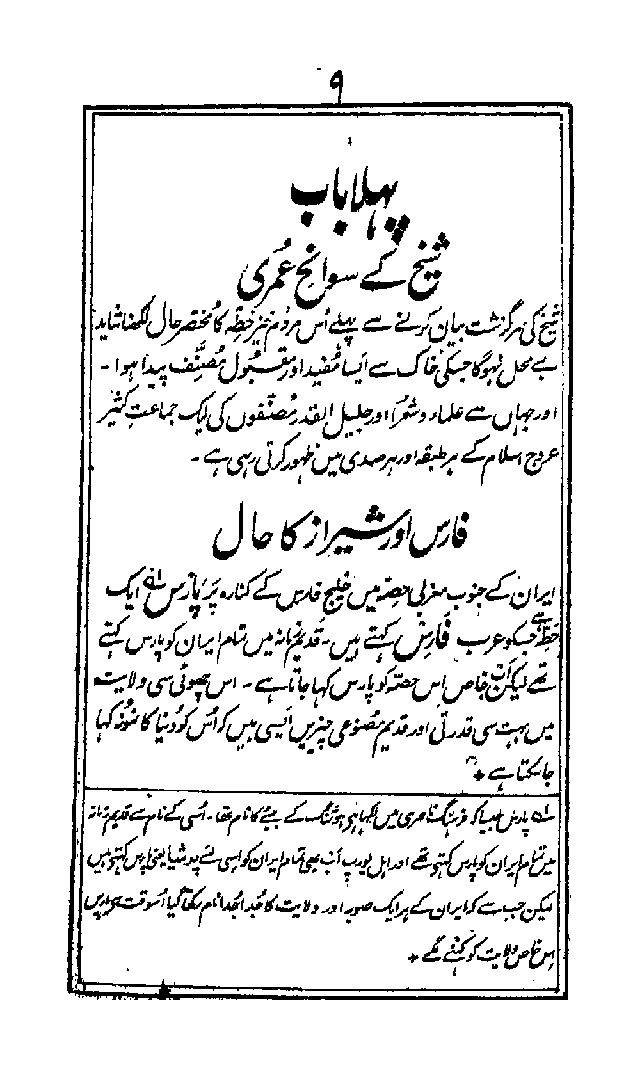 ۹
پہلا باب
شیخ کے سوانح عمری
شیخ کی سرگزشت بیان کرنے سے پہلے اُس مردم خیز خطہ کا مختصر حال لکھنا شاید
بے محل نہوگا جسکی خاک سے ایسا مُفید اور مقبول مُصنِّف پیدا ہوا۔
اور جہاں سے علماء و شعرا اور جلیل القدر مُصنّفوں کی ایک جماعتِ کثیر
عروج اسلام کے ہر طبقہ اور ہر صدی میں ظہور کرتی رہی ہے۔
فارس اور شیراز کا حال
ایران کے جنوب مغربی حصّہ میں خلیج فارس کے کنارہ پر پارس ۵۱ ایک
خطہ ہے جسکو عرب فارس کہتے ہیں۔ قدیم زمانہ میں تمام ایران کو پارس کہتے
تھے لیکن اب خاص اِس حصّہ کو پارس کہا جاتا ہے۔ اس چھوٹی سی ولایت
میں بہت سی قدرتی اور قدیم مصنوعی چیزیں ایسی ہیں کہ اُس کو دُنیا کا نمونہ کہا
جا سکتا ہے
۵۱ پارس جیسا کہ فرہنگ ناصری میں لکھا ہی ہوشنگ کے بیٹے کا نام تھا۔ اُسی کے نام سے قدیم زمانہ
میں تمام ایران کو پارس کہتے تھے اور اہل یورپ اب بھی تمام ایران کو اسی لئے پرشیا یعنی پارس کہتے ہیں
لیکن جب سے کہ ایران کے ہر ایک صوبہ اور ولایت کا جُدا جُدا نام رکھا گیا اُسوقت سے پارس
اِس خاص ولایت کو کہنے لگے